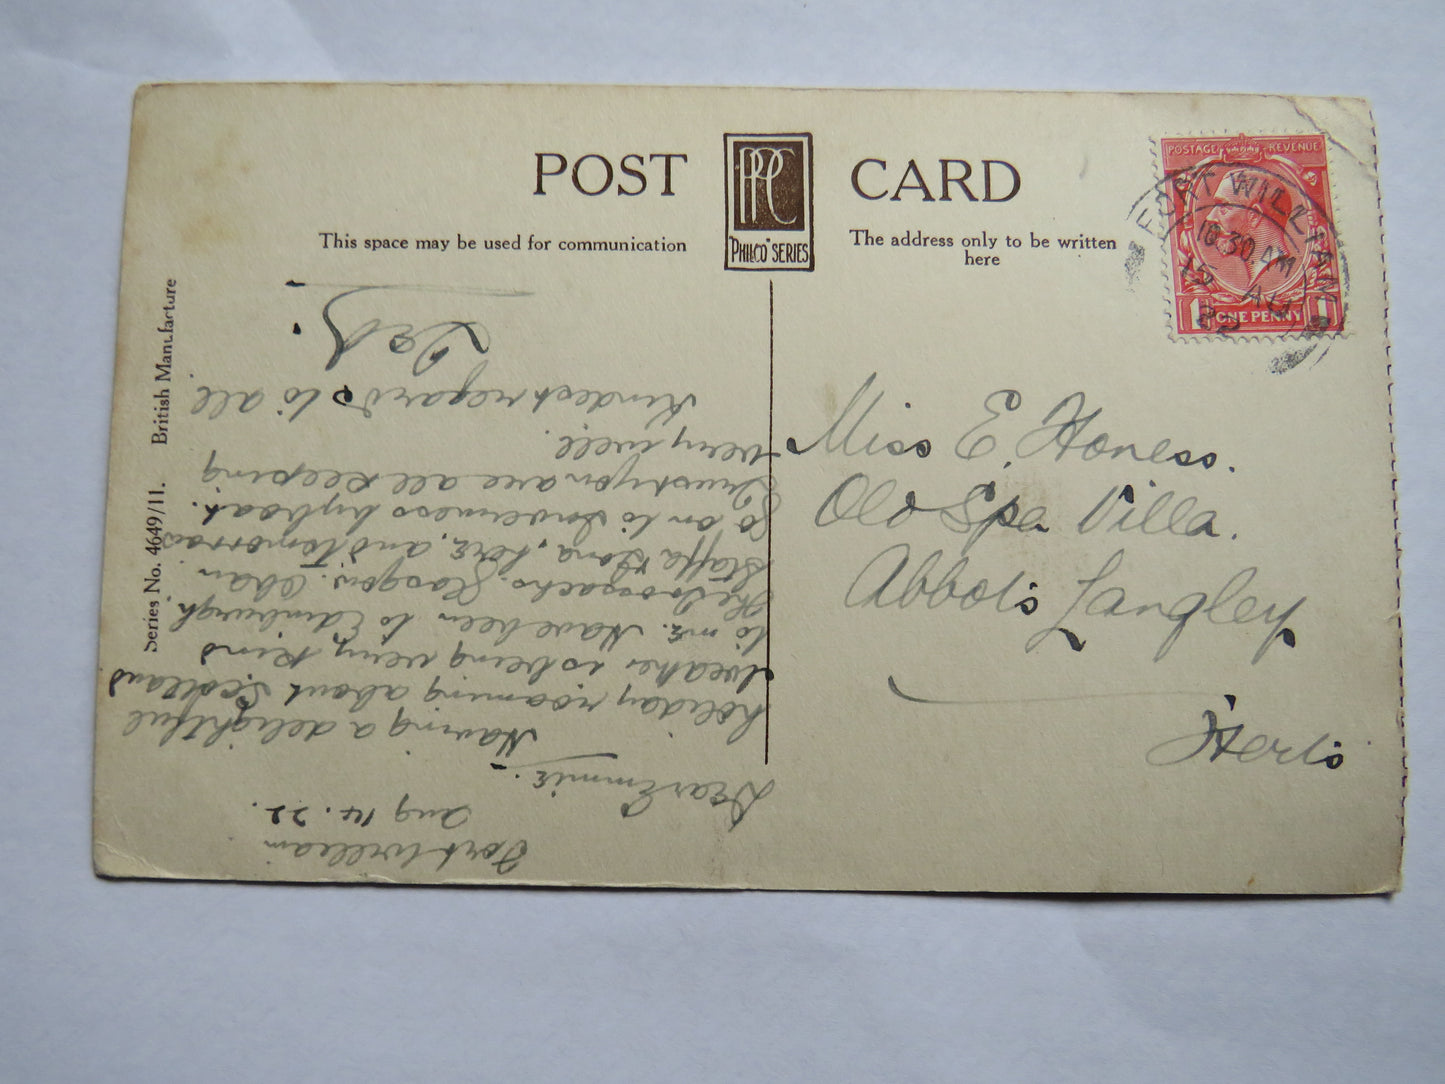 POST CARD
PPC
"PHILCO" SERIES
This space may be used for communication
The address only to be written
here
POSTAGE REVENUE
ONE PENNY
1 1
FORT WILLIAM
10.30 AM
15 AU
22
Series No. 4649/11. British Manufacture
Miss E. Honess.
Old Spa Villa.
Abbots Langley
Herts
Fort William
Aug 14. 22.
Dear Emmie.
Having a delightful
holiday roaming about Scotland
Weather is being very kind
to me. Have been to Edinburgh.
The Trossachs. Glasgow. Oban.
Staffa Iona, here, and tomorrow
go on to Inverness by boat.
Trust you are all keeping
very well.
Kindest regards to all